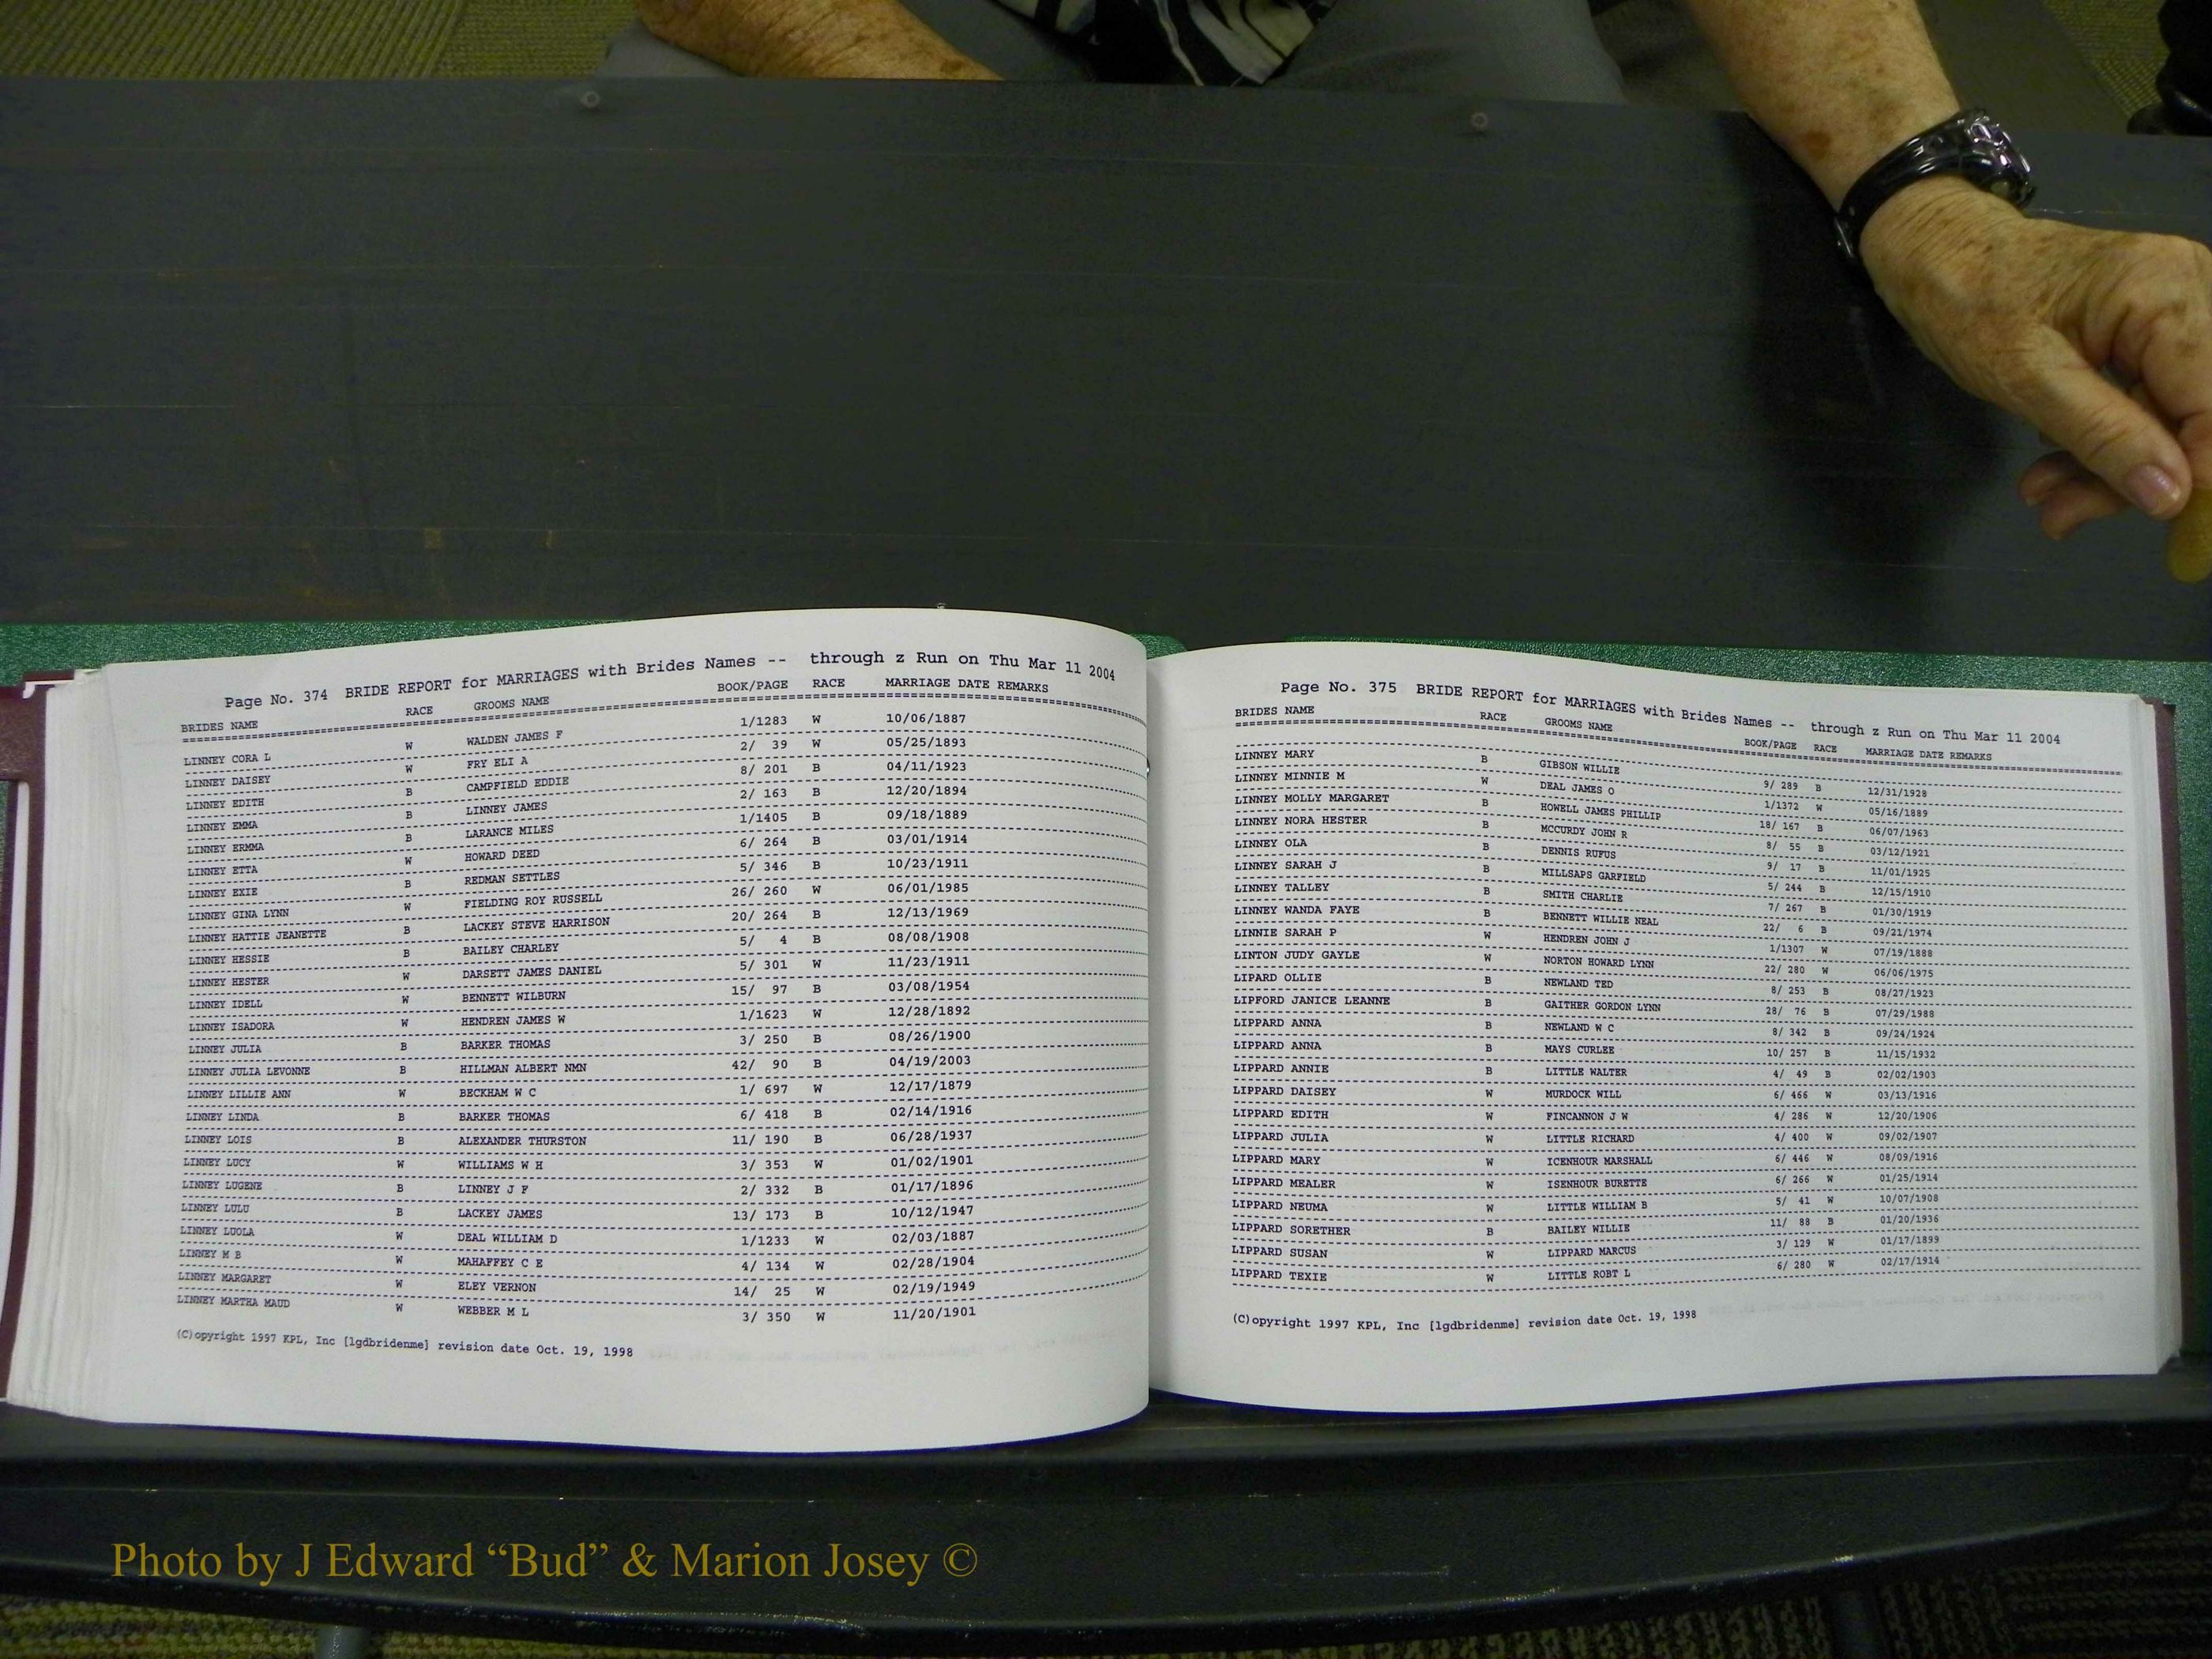 Page No. 374 BRIDE REPORT for MARRIAGES with Brides Names -- through z Run on Thu Mar 11 2004
BRIDES NAME RACE GROOMS NAME BOOK/PAGE RACE MARRIAGE DATE REMARKS
LINNEY CORA L W WALDEN JAMES F 1/1283 W 10/06/1887
LINNEY DAISEY W FRY ELI A 2/ 39 W 05/25/1893
LINNEY EDITH B CAMPFIELD EDDIE 8/ 201 B 04/11/1923
LINNEY EMMA B LINNEY JAMES 2/ 163 B 12/20/1894
LINNEY ERMMA B LARANCE MILES 1/1405 B 09/18/1889
LINNEY ETTA W HOWARD DEED 6/ 264 B 03/01/1914
LINNEY EXIE B REDMAN SETTLES 5/ 346 B 10/23/1911
LINNEY GINA LYNN W FIELDING ROY RUSSELL 26/ 260 W 06/01/1985
LINNEY HATTIE JEANETTE B LACKEY STEVE HARRISON 20/ 264 B 12/13/1969
LINNEY HESSIE B BAILEY CHARLEY 5/ 4 B 08/08/1908
LINNEY HESTER W DARSETT JAMES DANIEL 5/ 301 W 11/23/1911
LINNEY IDELL W BENNETT WILBURN 15/ 97 B 03/08/1954
LINNEY ISADORA W HENDREN JAMES W 1/1623 W 12/28/1892
LINNEY JULIA B BARKER THOMAS 3/ 250 B 08/26/1900
LINNEY JULIA LEVONNE B HILLMAN ALBERT NMN 42/ 90 B 04/19/2003
LINNEY LILLIE ANN W BECKHAM W C 1/ 697 W 12/17/1879
LINNEY LINDA B BARKER THOMAS 6/ 418 B 02/14/1916
LINNEY LOIS B ALEXANDER THURSTON 11/ 190 B 06/28/1937
LINNEY LUCY W WILLIAMS W H 3/ 353 W 01/02/1901
LINNEY LUGENE B LINNEY J F 2/ 332 B 01/17/1896
LINNEY LULU B LACKEY JAMES 13/ 173 B 10/12/1947
LINNEY LUOLA W DEAL WILLIAM D 1/1233 W 02/03/1887
LINNEY M B W MAHAFFEY C E 4/ 134 W 02/28/1904
LINNEY MARGARET W ELEY VERNON 14/ 25 W 02/19/1949
LINNEY MARTHA MAUD W WEBBER M L 3/ 350 W 11/20/1901
(C)opyright 1997 KPL, Inc [lgdbridenme] revision date Oct. 19, 1998
Page No. 375 BRIDE REPORT for MARRIAGES with Brides Names -- through z Run on Thu Mar 11 2004
BRIDES NAME RACE GROOMS NAME BOOK/PAGE RACE MARRIAGE DATE REMARKS
LINNEY MARY B GIBSON WILLIE 9/ 289 B 12/31/1928
LINNEY MINNIE M W DEAL JAMES O 1/1372 W 05/16/1889
LINNEY MOLLY MARGARET B HOWELL JAMES PHILLIP 18/ 167 B 06/07/1963
LINNEY NORA HESTER B MCCURDY JOHN R 8/ 55 B 03/12/1921
LINNEY OLA B DENNIS RUFUS 9/ 17 B 11/01/1925
LINNEY SARAH J B MILLSAPS GARFIELD 5/ 244 B 12/15/1910
LINNEY TALLEY B SMITH CHARLIE 7/ 267 B 01/30/1919
LINNEY WANDA FAYE B BENNETT WILLIE NEAL 22/ 6 B 09/21/1974
LINNIE SARAH P W HENDREN JOHN J 1/1307 W 07/19/1888
LINTON JUDY GAYLE W NORTON HOWARD LYNN 22/ 280 W 06/06/1975
LIPARD OLLIE B NEWLAND TED 8/ 253 B 08/27/1923
LIPFORD JANICE LEANNE B GAITHER GORDON LYNN 28/ 76 B 07/29/1988
LIPPARD ANNA B NEWLAND W C 8/ 342 B 09/24/1924
LIPPARD ANNA B MAYS CURLEE 10/ 257 B 11/15/1932
LIPPARD ANNIE B LITTLE WALTER 4/ 49 B 02/02/1903
LIPPARD DAISEY W MURDOCK WILL 6/ 466 W 03/13/1916
LIPPARD EDITH W FINCANNON J W 4/ 286 W 12/20/1906
LIPPARD JULIA W LITTLE RICHARD 4/ 400 W 09/02/1907
LIPPARD MARY W ICENHOUR MARSHALL 6/ 446 W 08/09/1916
LIPPARD MEALER W ISENHOUR BURETTE 6/ 266 W 01/25/1914
LIPPARD NEUMA W LITTLE WILLIAM B 5/ 41 W 10/07/1908
LIPPARD SORETHER B BAILEY WILLIE 11/ 88 B 01/20/1936
LIPPARD SUSAN W LIPPARD MARCUS 3/ 129 W 01/17/1899
LIPPARD TEXIE W LITTLE ROBT L 6/ 280 W 02/17/1914
(C)opyright 1997 KPL, Inc [lgdbridenme] revision date Oct. 19, 1998
Photo by J Edward “Bud” & Marion Josey ©